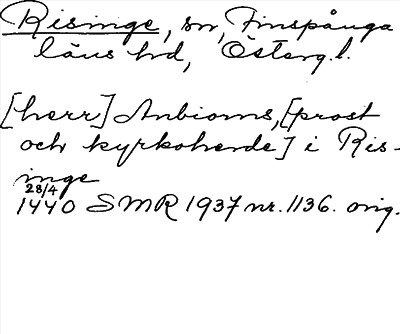 Risinge, sn, Finspånga
läns hd, Österg. l.
[herr] Anbiorns, [prost
och kyrkoherde] i Ris-
inge
28/4
1440 SMR 1937 nr. 1136. orig.